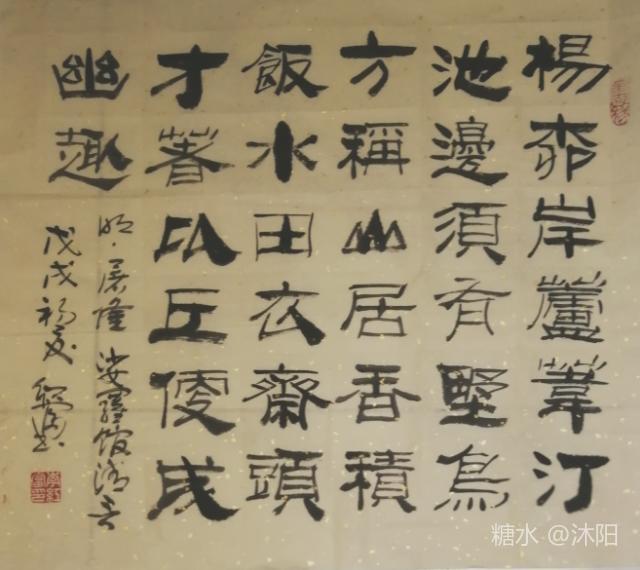 楊桺岸蘆葦汀
池邊須有野鳥
方稱山居香積
飯水田衣齋頭
才著比丘便成
幽趣
明·屠隆 娑羅館清言
戊戌初夏
糖水 @沐阳